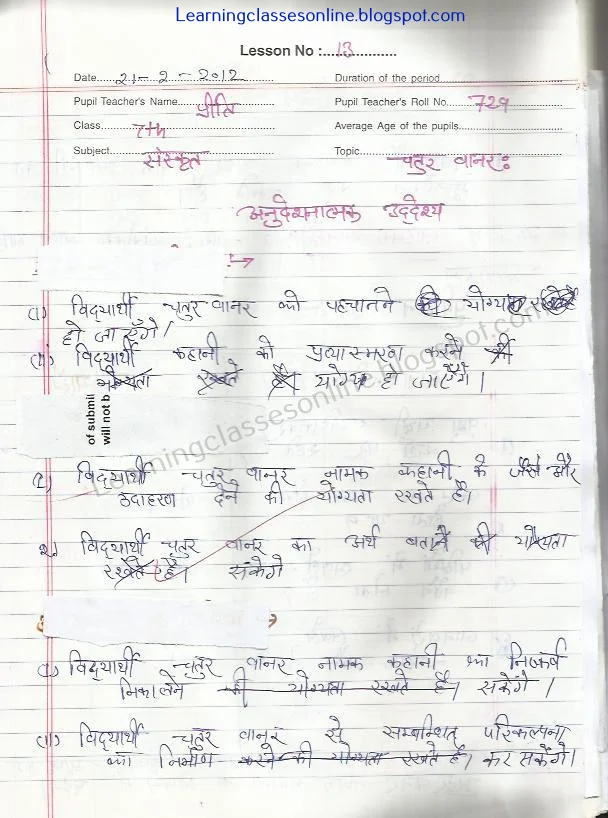 Learningclassesonline.blogspot.com
Lesson No :....13............
Date....21-2-2012........ Duration of the period..................
Pupil Teacher's Name...प्रीति........ Pupil Teacher's Roll No...729.........
Class.........7th.................... Average Age of the pupils..............
Subject......संस्कृत............ Topic.......चतुर वानरः
अनुदेशनात्मक उद्देश्य
(i) विद्यार्थी चतुर वानर को पहचानने की योग्य
हो जाएँगे।
(ii) विद्यार्थी कहानी को प्रत्यास्मरण करने की
योग्यता रखते हैं योग्य हो जाएँगे।
of submi
will not b
Learningclassesonline.blogspot.com
(1) विद्यार्थी चतुर वानर नामक कहानी के जैसे और
उदाहरण देने की योग्यता रखते है।
2. विद्यार्थी चतुर वानर का अर्थ बताने की योग्यता
रखते है। सकेंगे
(i) विद्यार्थी चतुर वानर नामक कहानी का निष्कर्ष
निकालने की योग्यता रखते है। सकेंगे।
(ii) विद्यार्थी चतुर वानर से सम्बन्धित परिकल्पना
का निर्माण करने की योग्यता रखते है। कर सकेंगे।